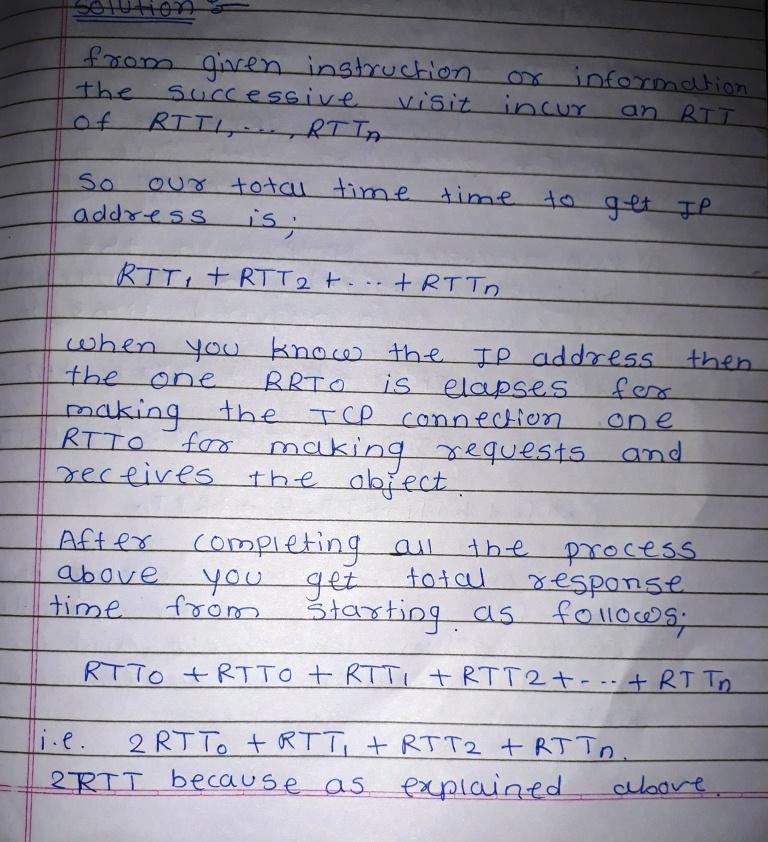 Solution :-
from given instruction or information
the successive visit incur an RTT
of RTT1, ..., RTTn
So our total time time to get IP
address is;
RTT1 + RTT2 + ... + RTTn
when you know the IP address then
the one RRTO is elapses for
making the TCP connection one
RTTO for making requests and
receives the object.
After completing all the process
above you get total response
time from starting as follows;
RTTO + RTTO + RTT1 + RTT2 + --- + RTTn
i.e. 2RTTo + RTT1 + RTT2 + RTTn.
2RTT because as explained above.